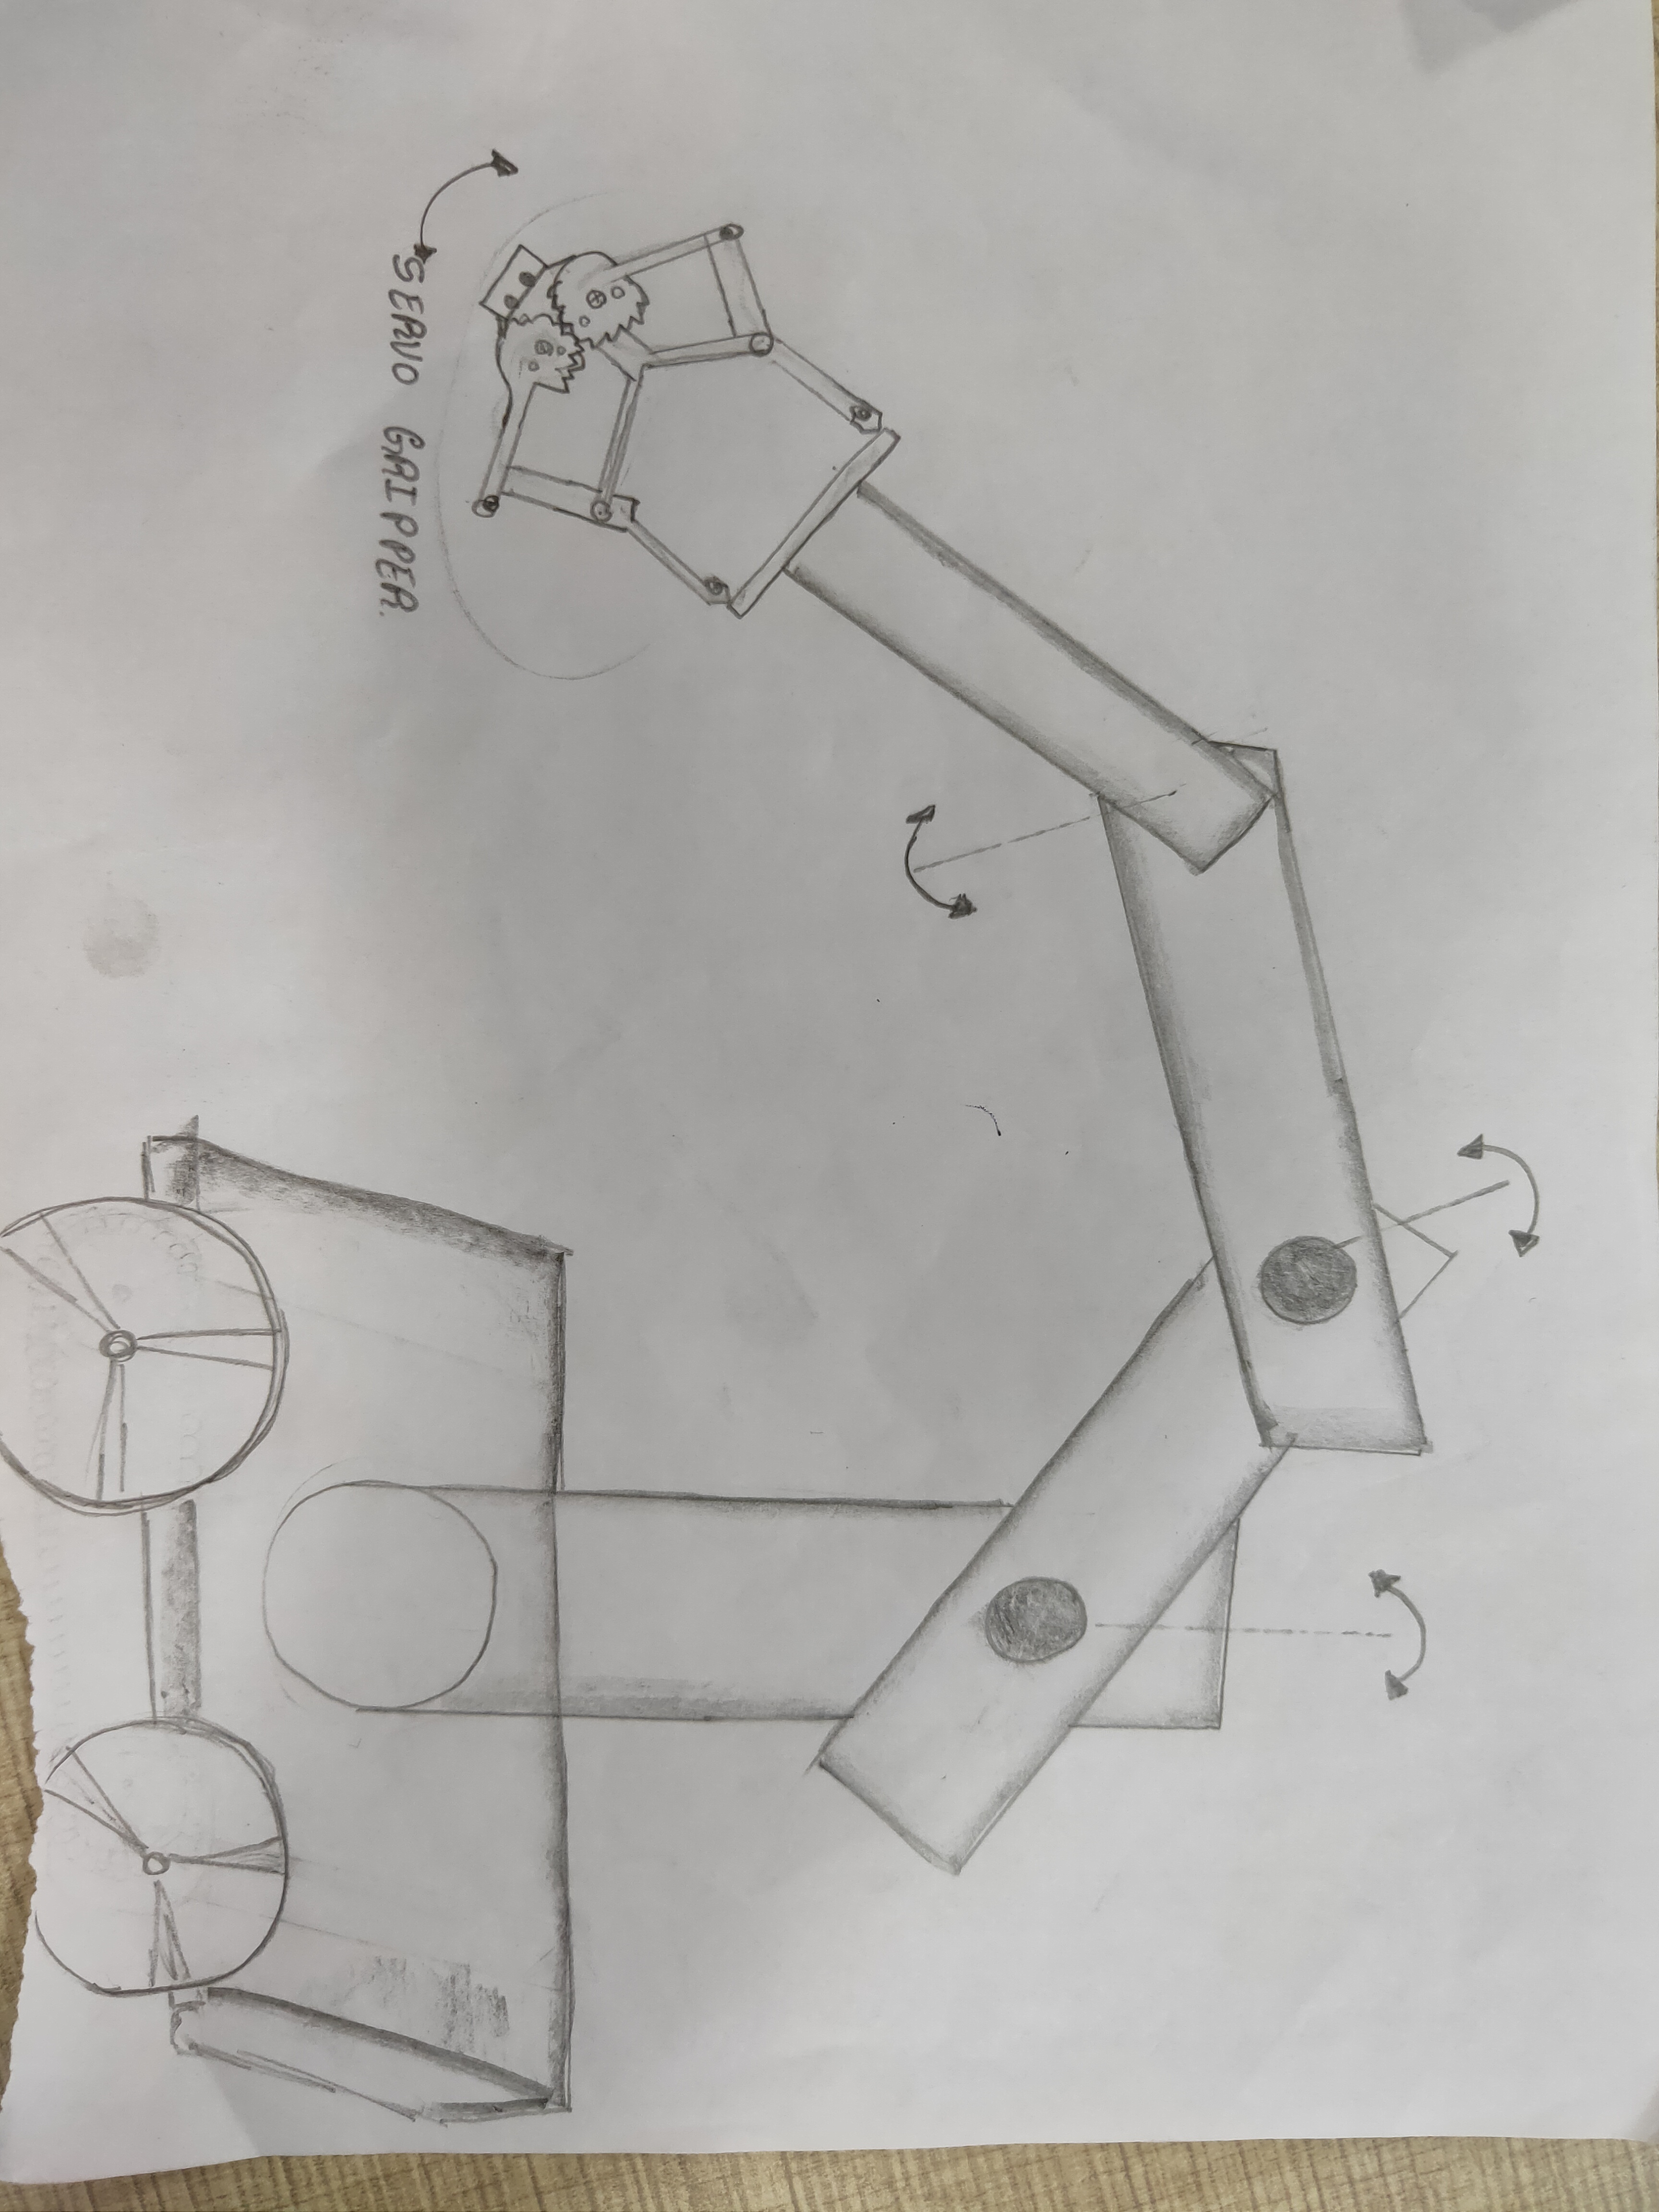 SERVO GRIPPER.